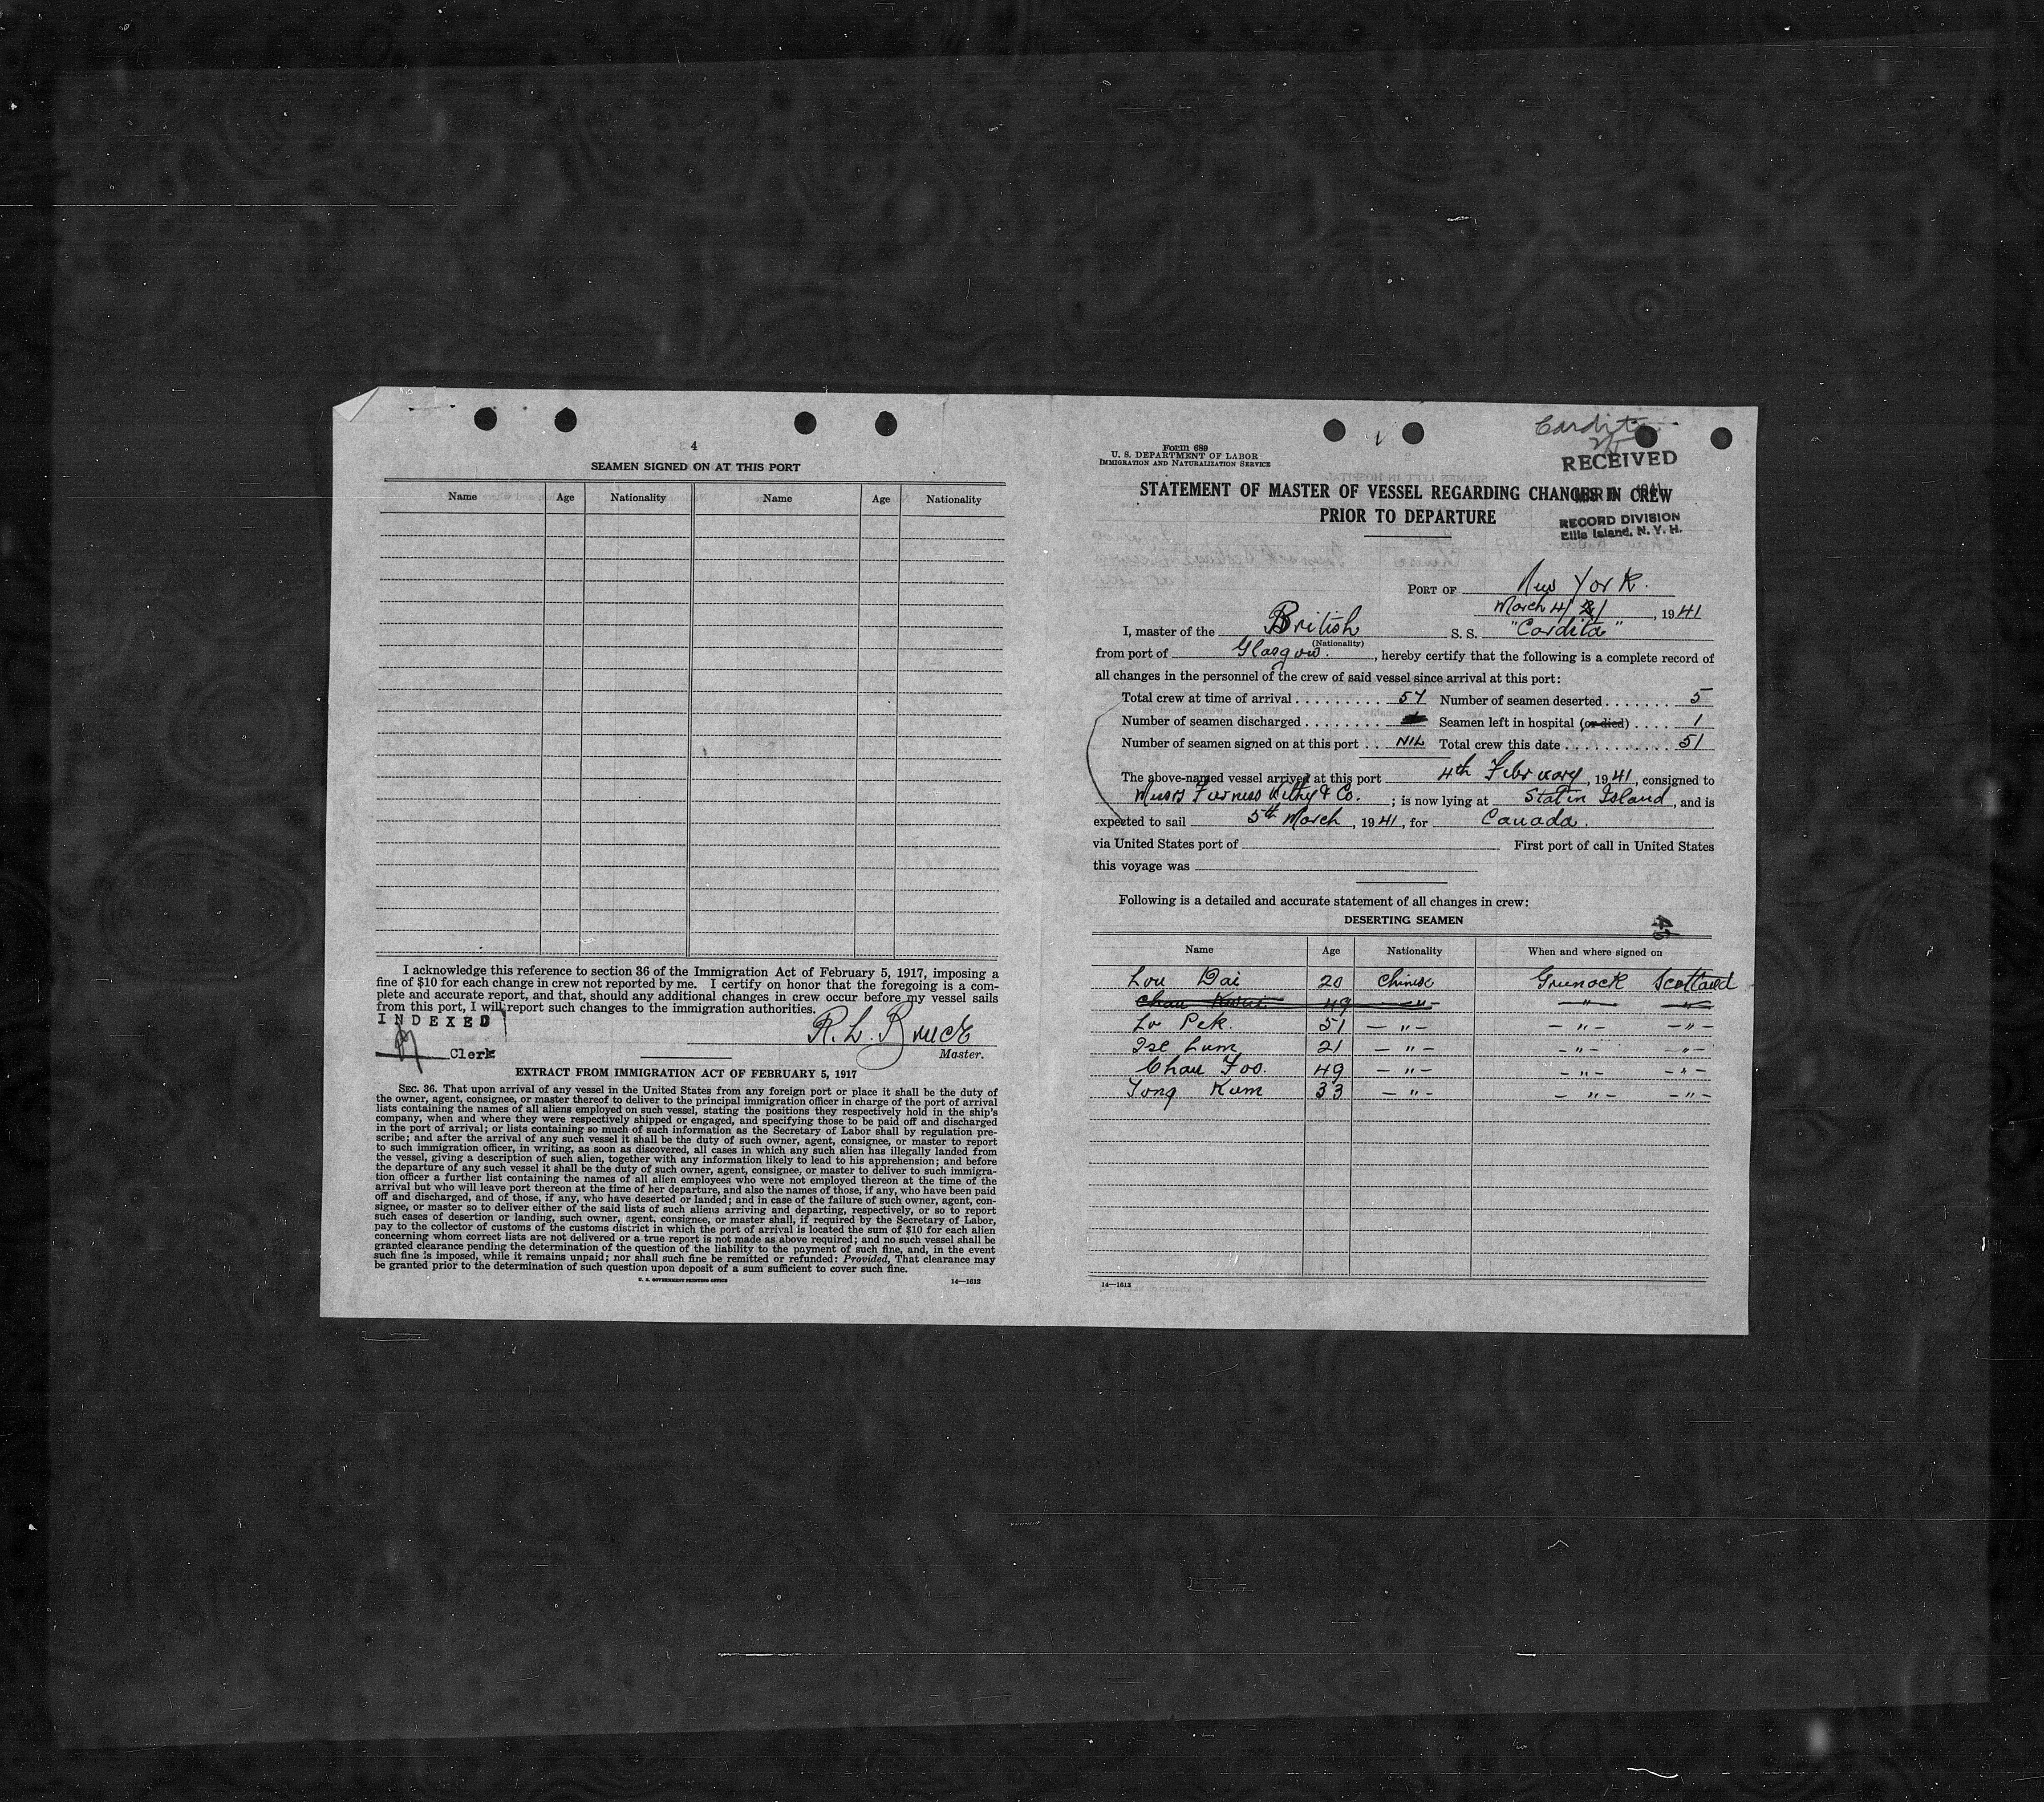 4
SEAMEN SIGNED ON AT THIS PORT
Name Age Nationality Name Age Nationality
I acknowledge this reference to section 36 of the Immigration Act of February 5, 1917, imposing a
fine of $10 for each change in crew not reported by me. I certify on honor that the foregoing is a com-
plete and accurate report, and that, should any additional changes in crew occur before my vessel sails
from this port, I will report such changes to the immigration authorities.
INDEXED
R. L. Bruck
Clerk
Master.
EXTRACT FROM IMMIGRATION ACT OF FEBRUARY 5, 1917
SEC. 36. That upon arrival of any vessel in the United States from any foreign port or place it shall be the duty of
the owner, agent, consignee, or master thereof to deliver to the principal immigration officer in charge of the port of arrival
lists containing the names of all aliens employed on such vessel, stating the positions they respectively hold in the ship's
company, when and where they were respectively shipped or engaged, and specifying those to be paid off and discharged
in the port of arrival; or lists containing so much of such information as the Secretary of Labor shall by regulation pre-
scribe; and after the arrival of any such vessel it shall be the duty of such owner, agent, consignee, or master to report
to such immigration officer, in writing, as soon as discovered, all cases in which any such alien has illegally landed from
the vessel, giving a description of such alien, together with any information likely to lead to his apprehension; and before
the departure of any such vessel it shall be the duty of such owner, agent, consignee, or master to deliver to such immigra-
tion officer a further list containing the names of all alien employees who were not employed thereon at the time of the
arrival but who will leave port thereon at the time of her departure, and also the names of those, if any, who have been paid
off and discharged, and of those, if any, who have deserted or landed; and in case of the failure of such owner, agent, con-
signee, or master so to deliver either of the said lists of such aliens arriving and departing, respectively, or so to report
such cases of desertion or landing, such owner, agent, consignee, or master shall, if required by the Secretary of Labor,
pay to the collector of customs of the customs district in which the port of arrival is located the sum of $10 for each alien
concerning whom correct lists are not delivered or a true report is not made as above required; and no such vessel shall be
granted clearance pending the determination of the question of the liability to the payment of such fine, and, in the event
such fine is imposed, while it remains unpaid; nor shall such fine be remitted or refunded: Provided, That clearance may
be granted prior to the determination of such question upon deposit of a sum sufficient to cover such fine.
U. S. GOVERNMENT PRINTING OFFICE 14—1613
Cardita
Form 689
U. S. DEPARTMENT OF LABOR
IMMIGRATION AND NATURALIZATION SERVICE
RECEIVED
STATEMENT OF MASTER OF VESSEL REGARDING CHANGES IN CREW
PRIOR TO DEPARTURE
RECORD DIVISION
Ellis Island, N. Y. H.
PORT OF New York.
March 4/ , 1941
I, master of the British S. S. "Cardita"
(Nationality)
from port of Glasgow. , hereby certify that the following is a complete record of
all changes in the personnel of the crew of said vessel since arrival at this port:
Total crew at time of arrival 57 Number of seamen deserted 5
Number of seamen discharged Seamen left in hospital (or died) 1
Number of seamen signed on at this port NIL Total crew this date 51
The above-named vessel arrived at this port 4th February, 1941, consigned to
Messrs Furness Withy & Co. ; is now lying at Staten Island, and is
expected to sail 5th March, 1941, for Canada.
via United States port of First port of call in United States
this voyage was
Following is a detailed and accurate statement of all changes in crew:
DESERTING SEAMEN
Name Age Nationality When and where signed on
Lou Dai 20 Chinese Greenock Scotland
Chau Kwai 49 —"— —"— —"—
Lo Pek. 51 —"— —"— —"—
Tse Lum 21 —"— —"— —"—
Chau Foo. 49 —"— —"— —"—
Tong Kum 33 —"— —"— —"—
14—1613